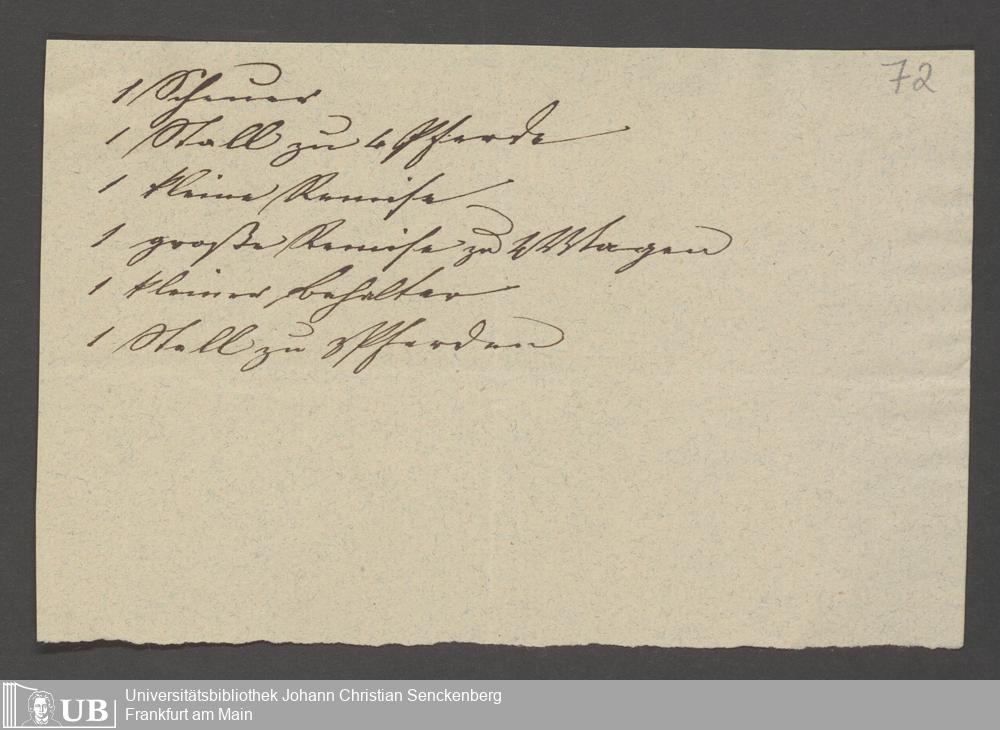 72
1 Scheuer
1 Stall zu 6 Pferde
1 kleine Remise
1 große Remise zu Wagen
1 kleiner behalter
1 Stall zu 3 Pferden
UB
Universitätsbibliothek Johann Christian Senckenberg
Frankfurt am Main